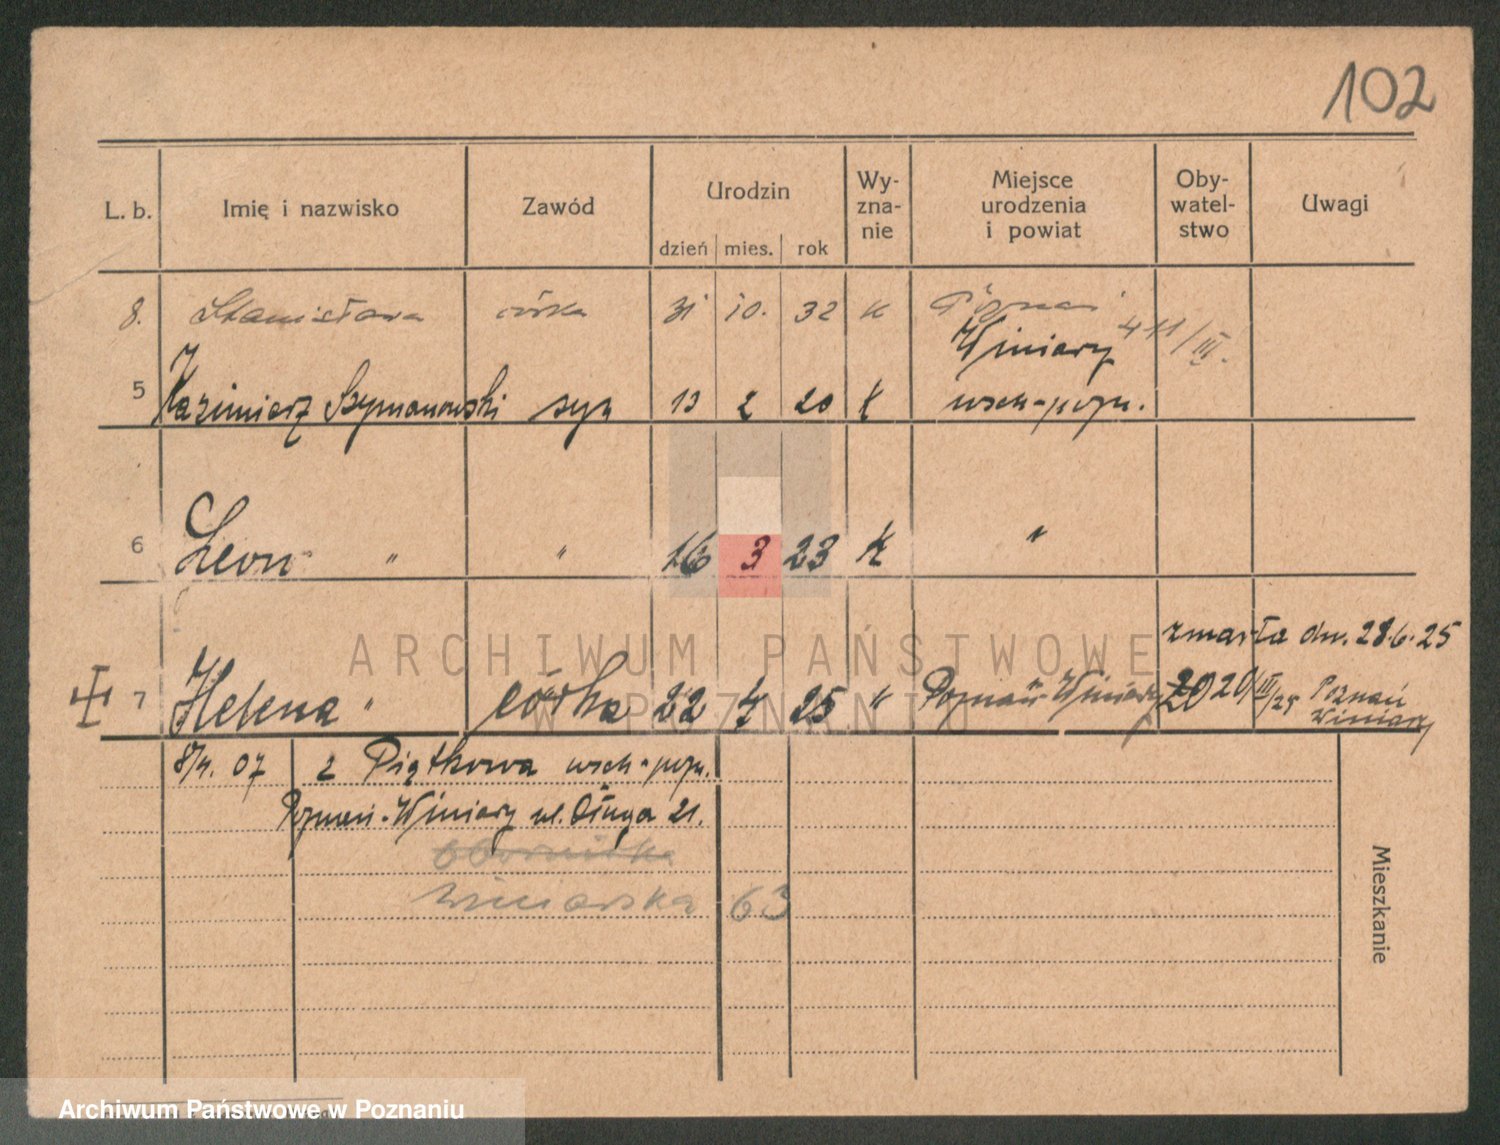 102
L. b. Imię i nazwisko Zawód Urodzin dzień mies. rok Wy-zna-nie Miejsce urodzenia i powiat Oby-watel-stwo Uwagi
8. Stanisława córka 31 10. 32 k Poznań
Winiary 4 11/III.
5 Kazimierz Szymanowski syn 13 2 20 k wsch-pozn.
6 Leon " " 16 3 23 k "
zmarła dn. 28.6.25
7 Helena " córka 22 4 25 k Poznań-Winiary 20 20/III/25 Poznań
Winiary
8/4. 07 2 Piątkowa wsch-pozn.
Poznań-Winiary ul. Długa 21.
Obornicka
Winiarska 63
Mieszkanie
ARCHIWUM PAŃSTWOWE
W POZNANIU
Archiwum Państwowe w Poznaniu